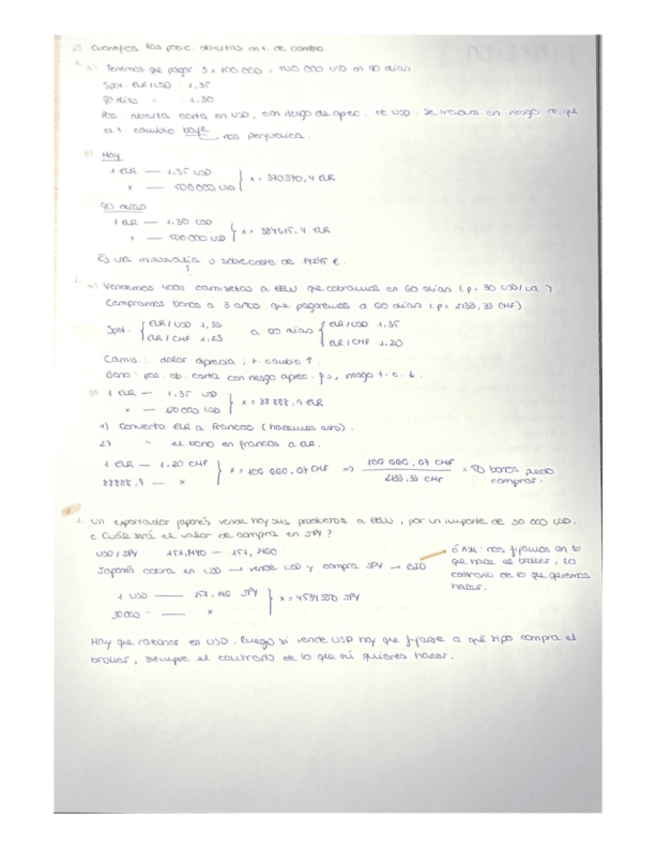 2) Cuantifica las posic. abiertas en t. de cambio
1. a) Tenemos que pagar 5 x 100 000 = 500 000 USD en 90 días.
Spot EUR/USD : 1,35
90 días " : 1,30
Pos. abierta corta en USD, con riesgo de aprec. de USD. Se traduce en riesgo de que
el t. cambio baje, nos perjudica.
b) Hoy
1 EUR — 1,35 USD
x — 500000 USD } x = 370370,4 EUR
90 días
1 EUR — 1,30 USD
x — 500000 USD } x = 384615,4 EUR
Es una minusvalía o sobrecoste de 14245 €.
2. a) Vendemos 4000 camisetas a EEUU que cobramos en 60 días (p = 30 USD/ud.)
Compramos bonos a 3 años que pagaremos a 60 días (p = 2133,33 CHF).
Spot. { EUR/USD 1,33 a 60 días { EUR/USD 1,35
EUR/CHF 1,23 EUR/CHF 1,20
Camis.: dolar deprecia ; t. cambio ↑.
Bono : pos. ab. corta con riesgo aprec. , riesgo t.c. ↓.
b) 1 EUR — 1,35 USD
x — 120000 USD } x = 88888,9 EUR
1) Convierto EUR a francos (hacemos esto).
2) " el bono en francos a EUR.
1 EUR — 1,20 CHF
88888,9 — x } x = 106 666,67 CHF ⇒ 106 666,67 CHF / 2133,33 CHF = 50 bonos puedo
comprar.
1. Un exportador japonés vende hoy sus productos a EEUU, por un importe de 30 000 USD.
¿Cuál será el valor de compra en JPY?
USD/JPY 151,1440 — 151,1460
Japonés cobra en USD → vende USD y compra JPY → BID
ó Ask: nos fijamos en lo
que hace el broker, lo
contrario de lo que queremos
hacer.
1 USD — 151,146 JPY
30000 " — x } x = 4534380 JPY
Hay que razonar en USD. Luego si vende USD hay que fijarse a qué tipo compra el
broker, siempre el contrario de lo que tú quieres hacer.